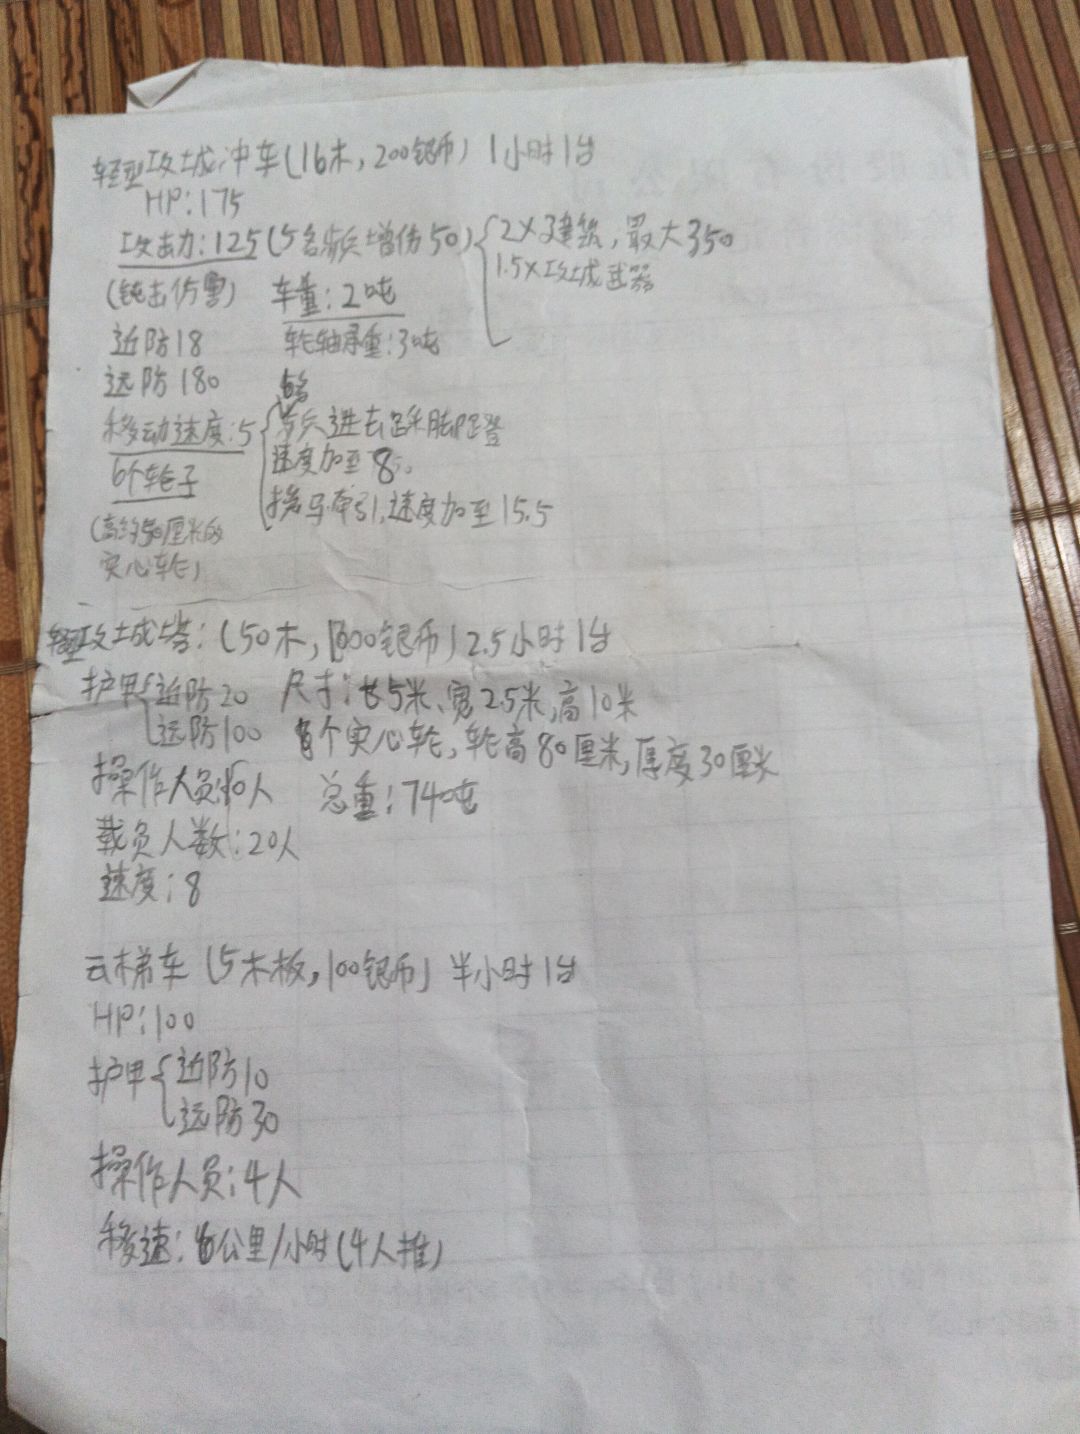 轻型攻城冲车(16木,200银币) 1小时1台
HP:175
攻击力:125(5名步兵增伤50){2×建筑,最大350
1.5×攻城武器
(钝击伤害) 车重:2吨
近防18 轮轴承重:3吨
远防180
移动速度:5{步兵进去踩脚蹬
速度加至8。
6个轮子
挽马牵引,速度加至15.5
(高约50厘米的
实心轮)
轻型攻城塔:(50木,1000银币)2.5小时1台
护甲{近防20 尺寸:长5米、宽2.5米,高10米
远防100 个实心轮,轮高80厘米,厚度30厘米
操作人员:10人 总重:740吨
载员人数:20人
速度:8
云梯车(5木板,100银币)半小时1台
HP:100
护甲{近防10
远防30
操作人员:4人
移速:6公里/小时(4人推)